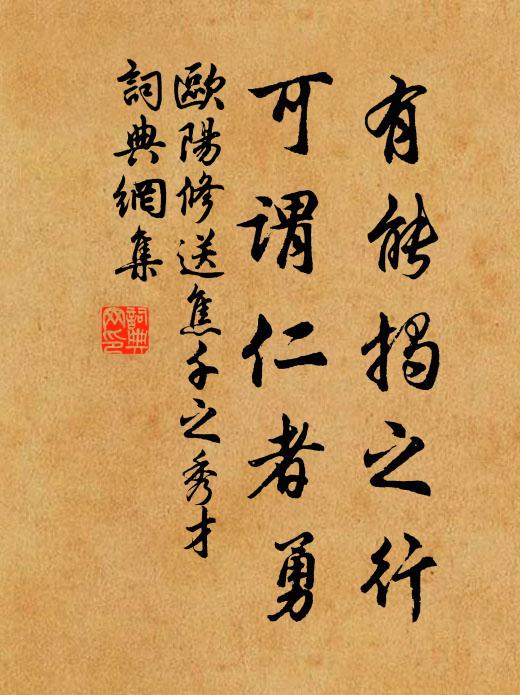 有能揭之行
可謂仁者勇
歐陽修送焦千之秀才
詞典網集
詞典
网印